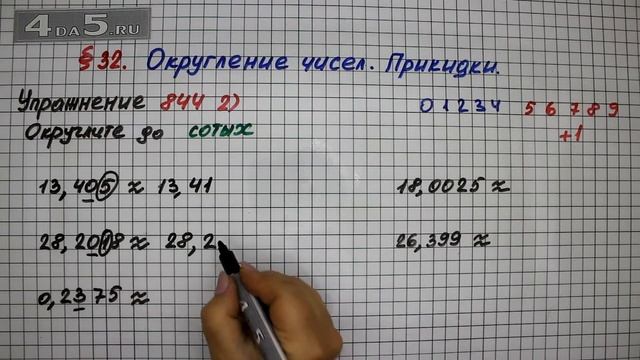 4DA5.RU
§32. Округление чисел. Прикидки.
Упражнение 844 2)
0 1 2 3 4 5 6 7 8 9
+1
Округлите до сотых
13,405 ≈ 13,41
18,0025 ≈
28,2018 ≈ 28,2
26,399 ≈
0,2375 ≈